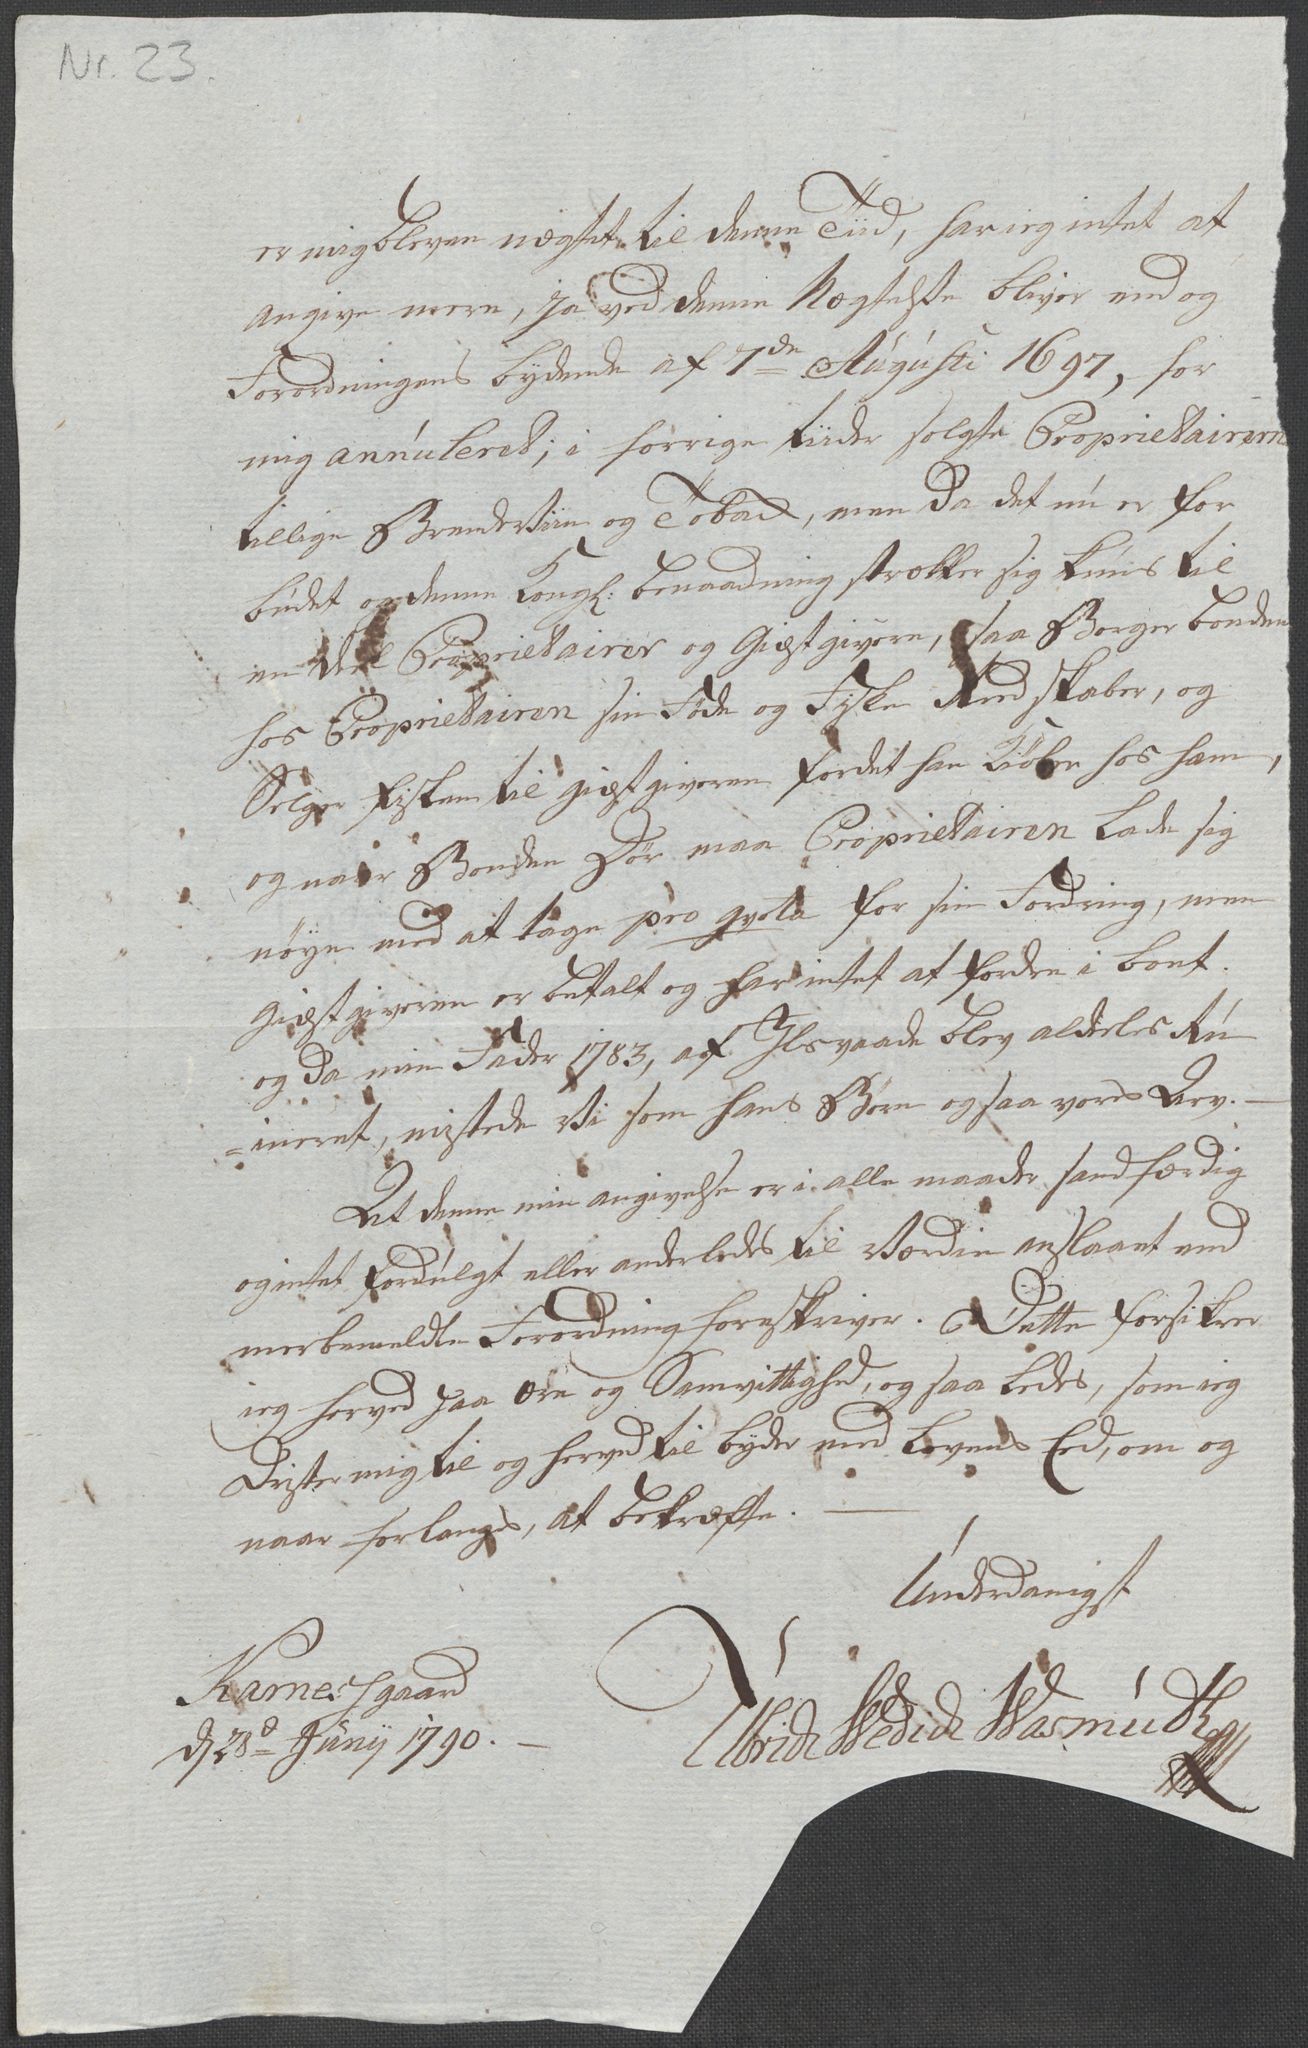 Nr. 23.
er mig bleven nægtet til denne Tiid, har ieg intet at
angive mere, ja ved denne Nægtelse bliver end og
Forordningens bydende af 7de Augusti 1697, for
mig annuleret; i forrige tiider solgte Proprietairerne
tillige Brendeviin og Tobak, men da det nu er for
budet og denne Kongl: benaadning strækker sig kuns til
en deel Proprietairer og Giæstgivere, saa Borger bonden
hos Proprietairen sin Föde og Fiske Redskaber, og
Selger fisken til giæstgiveren fordet han kiöber hos ham,
og naar Bonden Dör maa Proprietairen lade sig
nöye med at tage pro qvota for sin Fordring, men
giæstgiveren er betalt og har intet at fordre i boet.
og da min Fader 1783, af Ilsvaade blev aldeles Ru
=ineret, mistede vi som hans Börn og saa vores Arv. —
At denne min angivelse er i alle maader sandfærdig
og intet fordulgt eller anderledes til Værdie anslaaet end
merbemeldte Forordning foreskriver. Dette forsikrer
ieg herved paa ære og Samvittighed, og saaledes, som ieg
Drister mig til og herved til byder med Lovens Eed, om og
naar forlanges, at bekræfte. —
Underdanigst
Karnesgaard
d 28d Junij 1790. —
Ulrich Fridrich Wasmuth